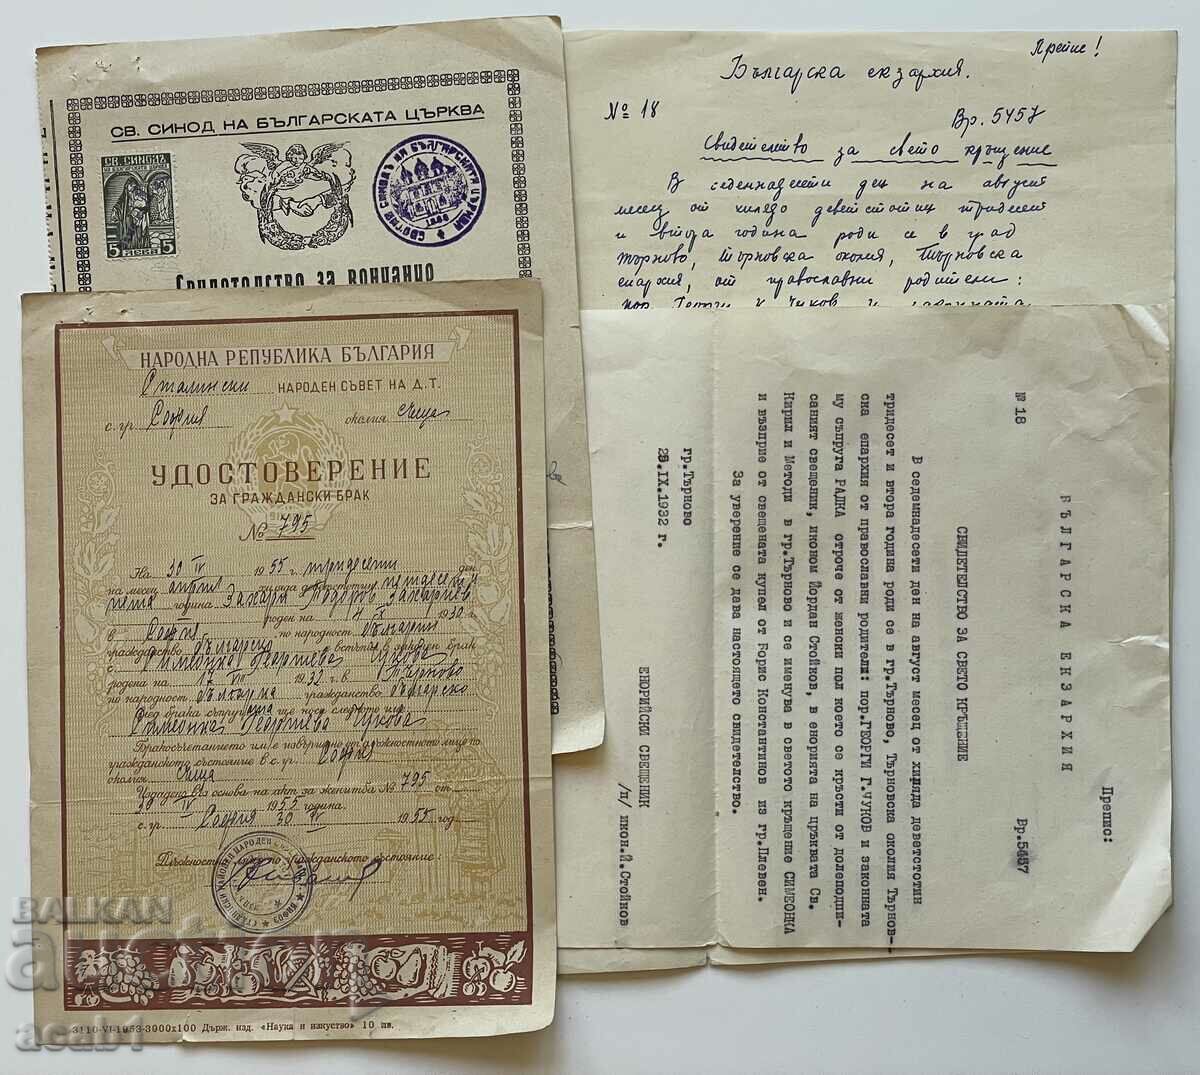 СВ. СИНОД НА БЪЛГАРСКАТА ЦЪРКВА
СВ. СИНОДЪ
5 ЛЕВА 5
СВЕТИЯ СИНОДЪ НА БЪЛГАРСКАТА ЦЪРКВА
Свидетелство за венчание
Препис!
Българска екзархия.
№ 18
Вр. 5457
Свидетелство за свето кръщение
В седемнадесети ден на август
месец от хилядо деветстотин тридесет
и втора година роди се в град
Търново, Търновска околия, Търновска
епархия, от православни родители:
пор. Георги Г. Чуков и законната
НАРОДНА РЕПУБЛИКА БЪЛГАРИЯ
Сталински НАРОДЕН СЪВЕТ НА Д. Т.
с. гр. София околия същата
УДОСТОВЕРЕНИЕ
ЗА ГРАЖДАНСКИ БРАК
№ 795
На 30 IV 1955 г. тридесети ден
на месец април хиляда деветстотин петдесет и
пета година Захари Тодоров Захариев
роден на 4 IX 1930 г.
в София, по народност българин
гражданство българско встъпи в граждански брак
с Симеонка Георгиева Чукова
родена на 17 VIII 1932 г. в Търново
по народност българка гражданство българско
След брака съпругата ще носи следното име
Симеонка Георгиева Чукова
Бракосъчетанието им е извършено от длъжностното лице по
гражданското състояние в с. гр. София
околия същата
Издадено въз основа на акт за женитба № 795 от
30 IV 1955 година.
с. гр. София 30 IV 1955 год.
Длъжностно лице по гражданското състояние:
3110-VI-1953-3000х100 Държ. изд. «Наука и изкуство» 10 лв.
Препис:
БЪЛГАРСКА ЕКЗАРХИЯ
№ 18
Вр.5457
СВИДЕТЕЛСТВО ЗА СВЕТО КРЪЩЕНИЕ
В седемнадесети ден на август месец от хиляда деветстотин
тридесет и втора година роди се в гр.Търново, Търновска околия Търнов-
ска епархия от православни родители: пор.ГЕОРГИ Г.ЧУКОВ и законната
му съпруга РАДКА отроче от женски пол което се кръсти от долеподпи-
саният свещеник, иконом Йордан Стойков, в енорията на църквата Св.
Кирил и Методи в гр.Търново и се именува в светото кръщение СИМЕОНКА
и възприе от свещената купел от Борис Константинов из гр.Плевен.
За уверение се дава настоящето свидетелство.
гр.Търново
25.IX.1932 г.
ЕНОРИЙСКИ СВЕЩЕНИК
/п/ икон.Й.Стойков
BALKAN
auction
acab1